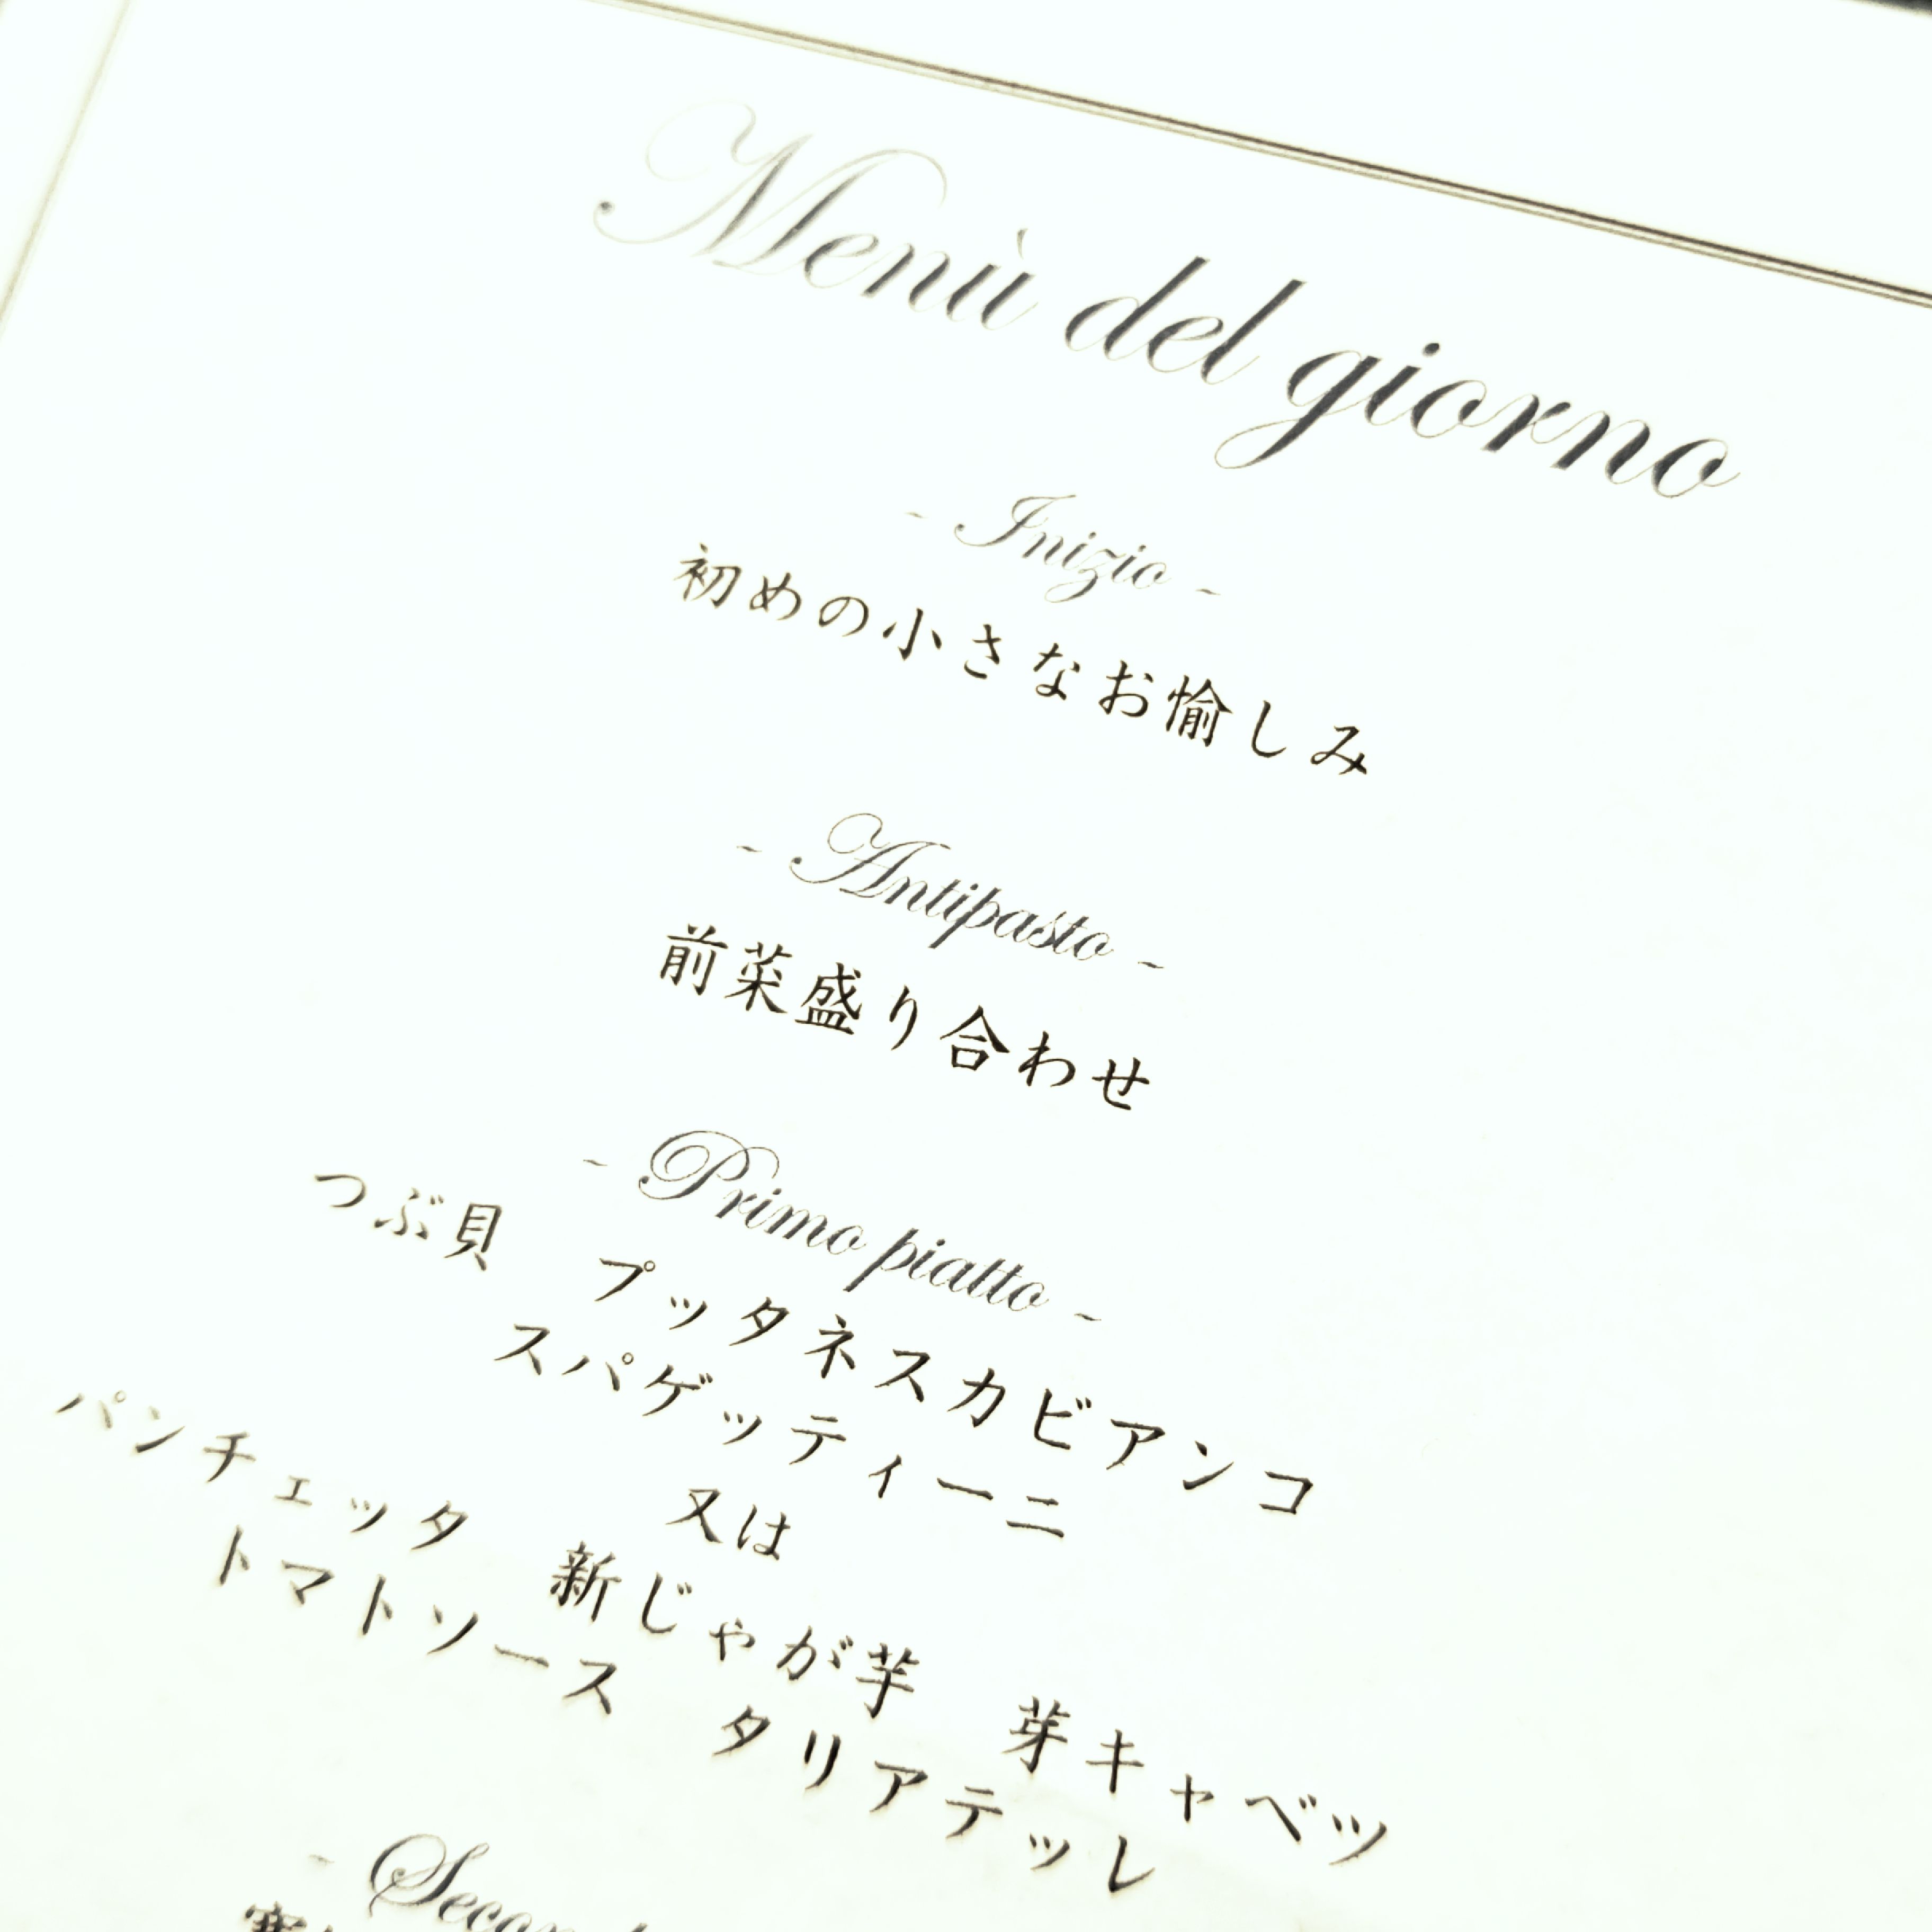 Menù del giorno
~ Inizio ~
初めの小さなお愉しみ
~ Antipasto ~
前菜盛り合わせ
~ Primo piatto ~
つぶ貝　プッタネスカビアンコ
スパゲッティーニ
又は
パンチェッタ　新じゃが芋　芽キャベツ
トマトソース　タリアテッレ